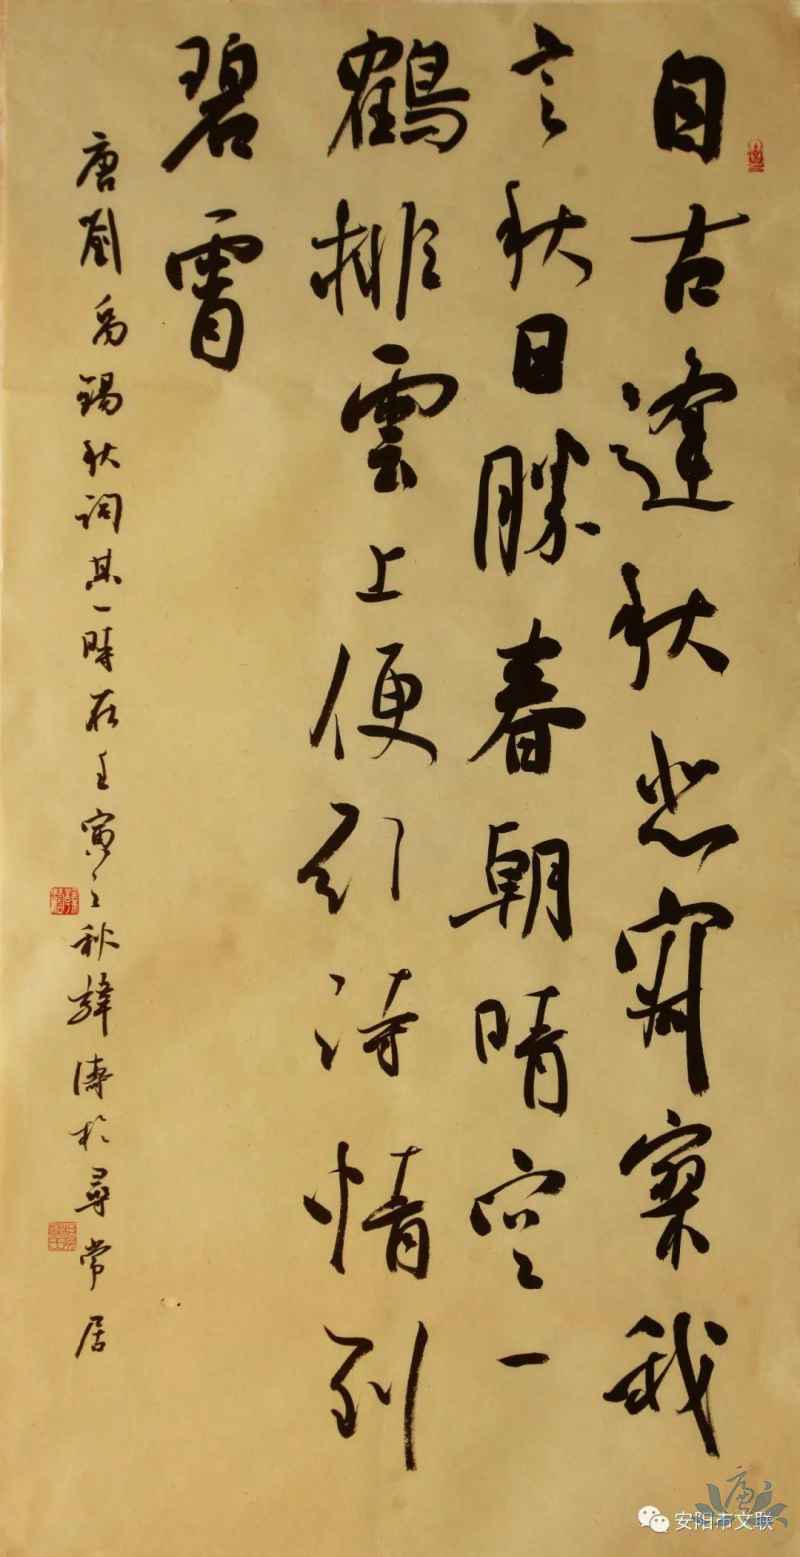 自古逢秋悲寂寥我
言秋日勝春朝晴空一
鶴排雲上便引詩情到
碧霄
唐劉禹錫秋詞其一時在壬寅之秋韓濤於尋常居
安阳市文联